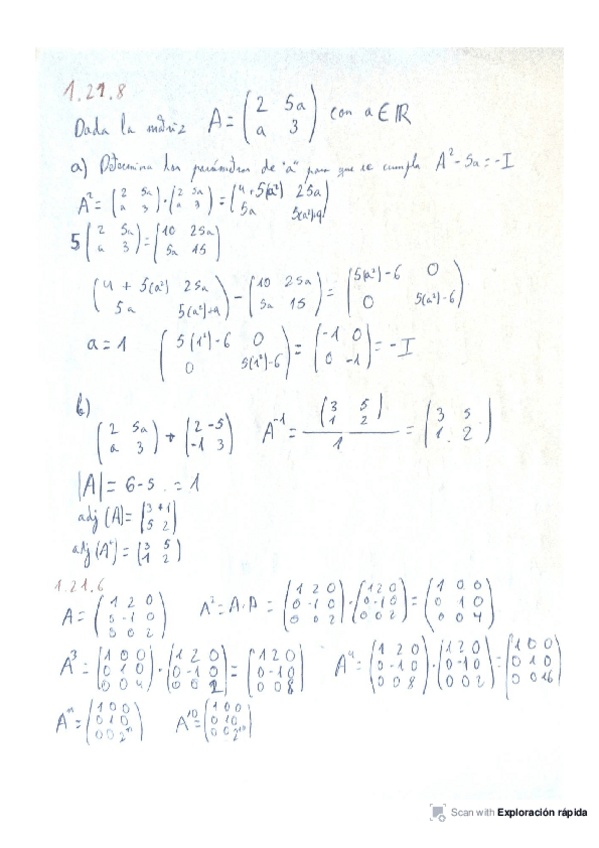 1.21.8
Dada la matriz A = (2 5a / a 3) con a∈ℝ
a) Determina los parámetros de "a" para que se cumpla A² - 5a = -I
A² = (2 5a / a 3) · (2 5a / a 3) = (4+5(a²) 25a / 5a 5(a²)+9)
5 (2 5a / a 3) = (10 25a / 5a 15)
(4 + 5(a²) 25a / 5a 5(a²)+9) - (10 25a / 5a 15) = (5(a²)-6 0 / 0 5(a²)-6)
a = 1 (5(1²)-6 0 / 0 5(1²)-6) = (-1 0 / 0 -1) = -I
b)
(2 5a / a 3) → (2 -5 / -1 3) A⁻¹ = (3 5 / 1 2) / 1 = (3 5 / 1 2)
|A| = 6-5 = 1
adj (A) = (3 +1 / 5 2)
adj (Aᵗ) = (3 5 / 1 2)
1.21.6
A = (1 2 0 / 0 -1 0 / 0 0 2) A² = A·A = (1 2 0 / 0 -1 0 / 0 0 2) · (1 2 0 / 0 -1 0 / 0 0 2) = (1 0 0 / 0 1 0 / 0 0 4)
A³ = (1 0 0 / 0 1 0 / 0 0 4) · (1 2 0 / 0 -1 0 / 0 0 2) = (1 2 0 / 0 -1 0 / 0 0 8) A⁴ = (1 2 0 / 0 -1 0 / 0 0 8) · (1 2 0 / 0 -1 0 / 0 0 2) = (1 0 0 / 0 1 0 / 0 0 16)
Aⁿ = (1 0 0 / 0 1 0 / 0 0 2ⁿ) A¹⁰ = (1 0 0 / 0 1 0 / 0 0 2¹⁰)
Scan with Exploración rápida